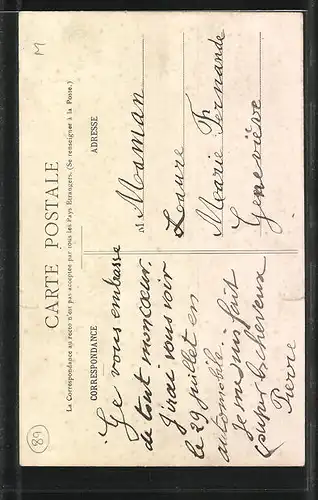 M
CARTE POSTALE
La Correspondance au recto n'est pas acceptée par tous les Pays Étrangers. (Se renseigner à la Poste.)
CORRESPONDANCE
Je vous embrasse
de tout mon cœur.
J'irai vous voir
le 29 juillet en
automobile.
Je me suis fait
couper les cheveux
Pierre
ADRESSE
M Maman
Laure
Marie Fernande
Geneviève
89